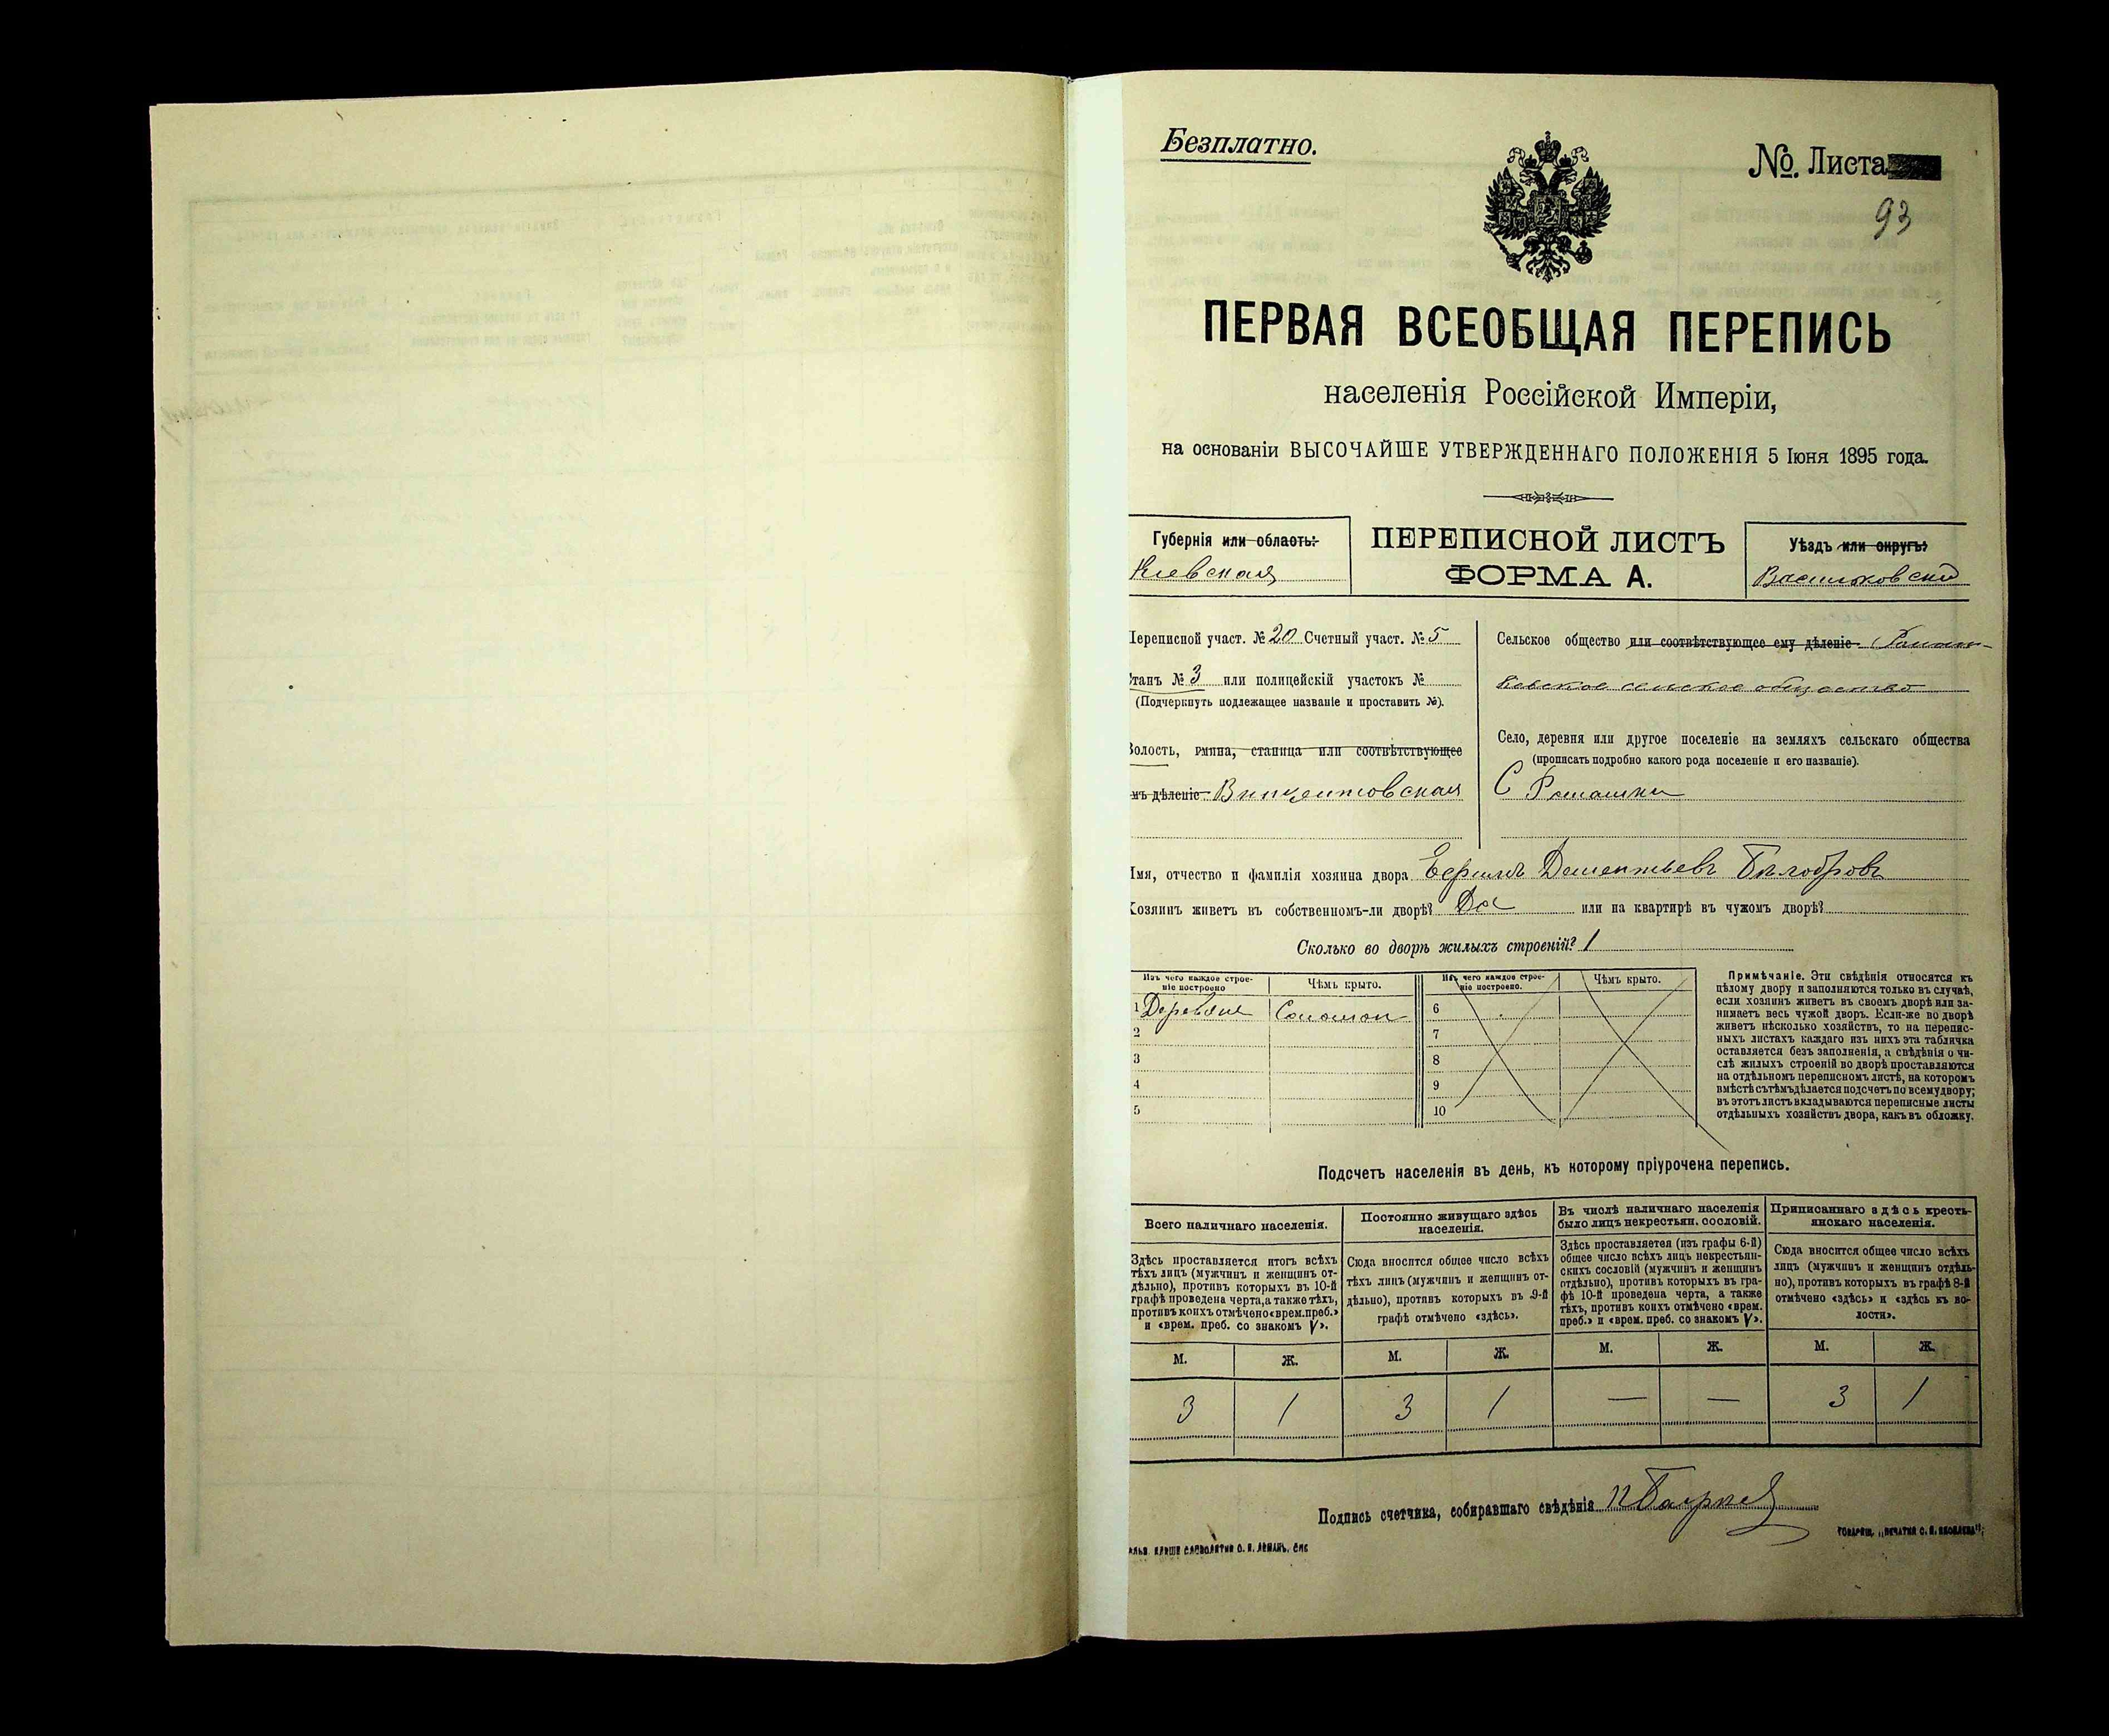 Безплатно.
№. Листа
93
ПЕРВАЯ ВСЕОБЩАЯ ПЕРЕПИСЬ
населенія Россійской Имперіи,
на основаніи ВЫСОЧАЙШЕ УТВЕРЖДЕННАГО ПОЛОЖЕНІЯ 5 Іюня 1895 года.
Губернія или область:
Кіевская
ПЕРЕПИСНОЙ ЛИСТЪ
ФОРМА А.
Уѣздъ или округъ:
Васильковскій
Переписной участ. № 20 Счетный участ. № 5
Станъ № 3 или полицейскій участокъ №
(Подчеркнуть подлежащее названіе и проставить №).
Волость, гмина, станица или соотвѣтствующее
имъ дѣленіе: Винцентовская
Сельское общество или соотвѣтствующее ему дѣленіе
сельское общество
Село, деревня или другое поселеніе на земляхъ сельскаго общества
(прописать подробно какого рода поселеніе и его названіе).
С Ромашки
Имя, отчество и фамилія хозяина двора Дементьевъ
Хозяинъ живетъ въ собственномъ-ли дворѣ? Да или на квартирѣ въ чужомъ дворѣ?
Сколько во дворѣ жилыхъ строеній? 1
Изъ чего каждое строе-
ніе построено
Чѣмъ крыто.
Изъ чего каждое строе-
ніе построено.
Чѣмъ крыто.
1 Соломой
2
3
4
5
6
7
8
9
10
Примѣчаніе. Эти свѣдѣнія относятся къ
цѣлому двору и заполняются только въ случаѣ,
если хозяинъ живетъ въ своемъ дворѣ или за-
нимаетъ весь чужой дворъ. Если-же во дворѣ
живетъ нѣсколько хозяйствъ, то на перепис-
ныхъ листахъ каждаго изъ нихъ эта табличка
оставляется безъ заполненія, а свѣдѣнія о чи-
слѣ жилыхъ строеній во дворѣ проставляются
на отдѣльномъ переписномъ листѣ, на которомъ
вмѣстѣ съ тѣмъ дѣлается подсчетъ по всему двору;
въ этотъ листъ вкладываются переписные листы
отдѣльныхъ хозяйствъ двора, какъ въ обложку.
Подсчетъ населенія въ день, къ которому пріурочена перепись.
Всего наличнаго населенія.
Здѣсь проставляется итогъ всѣхъ
тѣхъ лицъ (мужчинъ и женщинъ от-
дѣльно), противъ которыхъ въ 10-й
графѣ проведена черта, а также тѣхъ,
противъ коихъ отмѣчено «врем. преб.»
и «врем. преб. со знакомъ V».
Постоянно живущаго здѣсь
населенія.
Сюда вносится общее число всѣхъ
тѣхъ лицъ (мужчинъ и женщинъ от-
дѣльно), противъ которыхъ въ 9-й
графѣ отмѣчено «здѣсь».
Въ числѣ наличнаго населенія
было лицъ некрестьян. сословій.
Здѣсь проставляется (изъ графы 6-й)
общее число всѣхъ лицъ некрестьян-
скихъ сословій (мужчинъ и женщинъ
отдѣльно), противъ которыхъ въ гра-
фѣ 10-й проведена черта, а также
тѣхъ, противъ коихъ отмѣчено «врем.
преб.» и «врем. преб. со знакомъ V».
Приписаннаго здѣсь кресть-
янскаго населенія.
Сюда вносится общее число всѣхъ
лицъ (мужчинъ и женщинъ отдѣль-
но), противъ которыхъ въ графѣ 8-й
отмѣчено «здѣсь» и «здѣсь къ во-
лости».
М. Ж. М. Ж. М. Ж. М. Ж.
3 1 3 1 — — 3 1
Подпись счетчика, собиравшаго свѣдѣнія
ТОВАРИЩ. „ПЕЧАТНЯ С. П. ЯКОВЛЕВА";